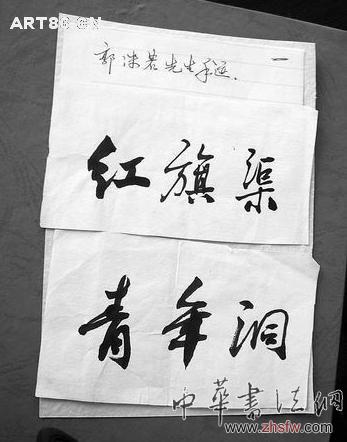 ART86.CN
郭沫若先生手迹.
一
红旗渠
青年洞
中華書法網
www.zhsfw.com